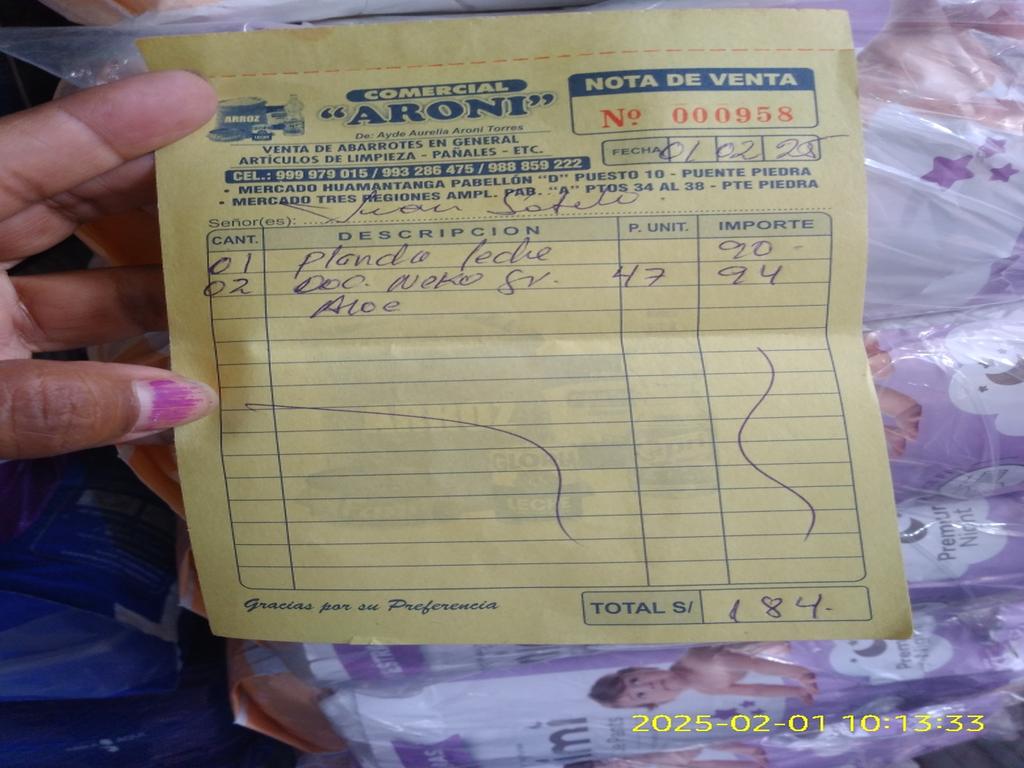 COMERCIAL
"ARONI"
De: Ayde Aurelia Aroni Torres
ARROZ
LECHE
VENTA DE ABARROTES EN GENERAL
ARTÍCULOS DE LIMPIEZA - PAÑALES - ETC.
CEL.: 999 979 015 / 993 286 475 / 988 859 222
• MERCADO HUAMANTANGA PABELLÓN "D" PUESTO 10 - PUENTE PIEDRA
• MERCADO TRES REGIONES AMPL. PAB. "A" PTOS 34 AL 38 - PTE PIEDRA
NOTA DE VENTA
Nº 000958
FECHA 01 02 25
Señor(es): Juan Sotelo
CANT. DESCRIPCION P. UNIT. IMPORTE
01 plancha leche 90-
02 Doc. Neko gr. 47 94
Aloe
Gracias por su Preferencia
TOTAL S/ 184.-
Premium
Night
2025-02-01 10:13:33